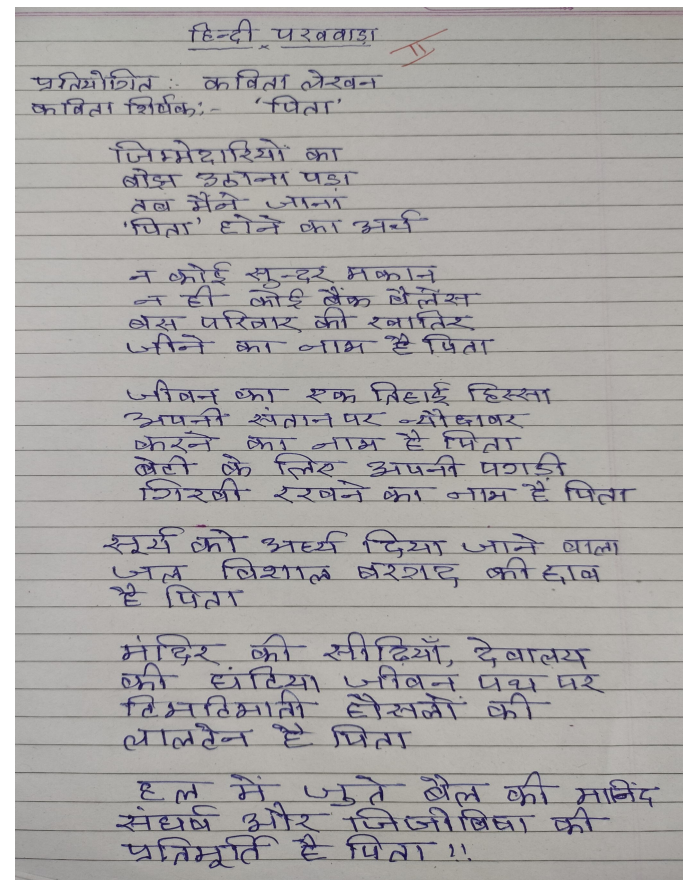 हिन्दी पखवाड़ा
II
प्रतियोगित :- कविता लेखन
कविता शिर्षक:- 'पिता'
जिम्मेदारियों का
बोझ उठाना पड़ा
तब मैंने जाना
'पिता' होने का अर्थ
न कोई सुन्दर मकान
न ही कोई बैंक बैलेंस
बस परिवार की खातिर
जीने का नाम है पिता
जीवन का एक तिहाई हिस्सा
अपनी संतान पर न्यौछावर
करने का नाम है पिता
बेटी के लिए अपनी पगड़ी
गिरवी रखने का नाम है पिता
सूर्य को अर्घ्य दिया जाने वाला
जल विशाल बरगद की छाव
है पिता
मंदिर की सीढ़ियाँ, देवालय
की घंटिया जीवन पथ पर
टिमटिमाती हौसलों की
लालटेन है पिता
हल में जुते बैल की मानिंद
संघर्ष और जिजीविषा की
प्रतिमूर्ति है पिता !!